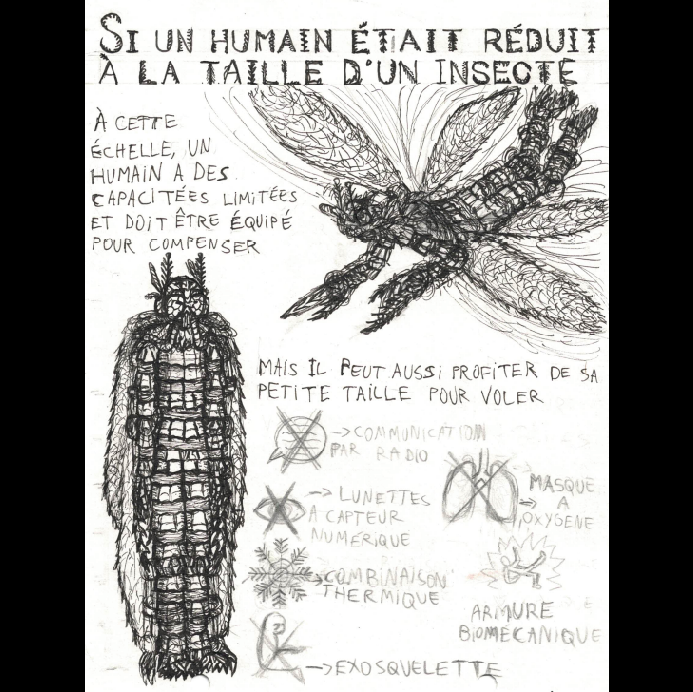 SI UN HUMAIN ÉTAIT RÉDUIT
À LA TAILLE D'UN INSECTE
À CETTE
ÉCHELLE, UN
HUMAIN A DES
CAPACITÉES LIMITÉES
ET DOIT ÊTRE ÉQUIPÉ
POUR COMPENSER
MAIS IL PEUT AUSSI PROFITER DE SA
PETITE TAILLE POUR VOLER
→ COMMUNICATION
PAR RADIO
→ LUNETTES
A CAPTEUR
NUMÉRIQUE
→ COMBINAISON
THERMIQUE
→ EXOSQUELETTE
→ MASQUE
A
OXYGENE
ARMURE
BIOMÉCANIQUE